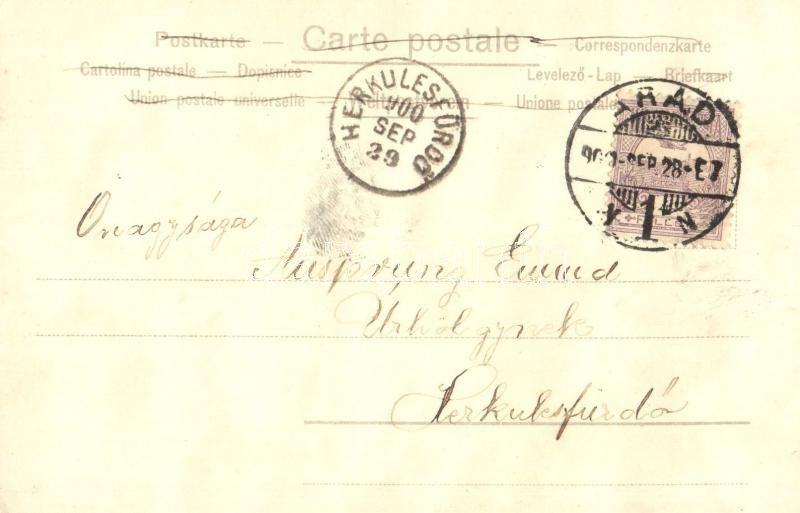 Postkarte — Carte postale — Correspondenzkarte
Cartolina postale — Dopisnice Levelező-Lap — Briefkaart
Union postale universelle — Unione postale
HERKULESFÜRDŐ
900
SEP
29
ARAD
900-SEP.28-E7
1
N
Onagysága
Ausprung
Úrhölgynek
Herkulesfürdő